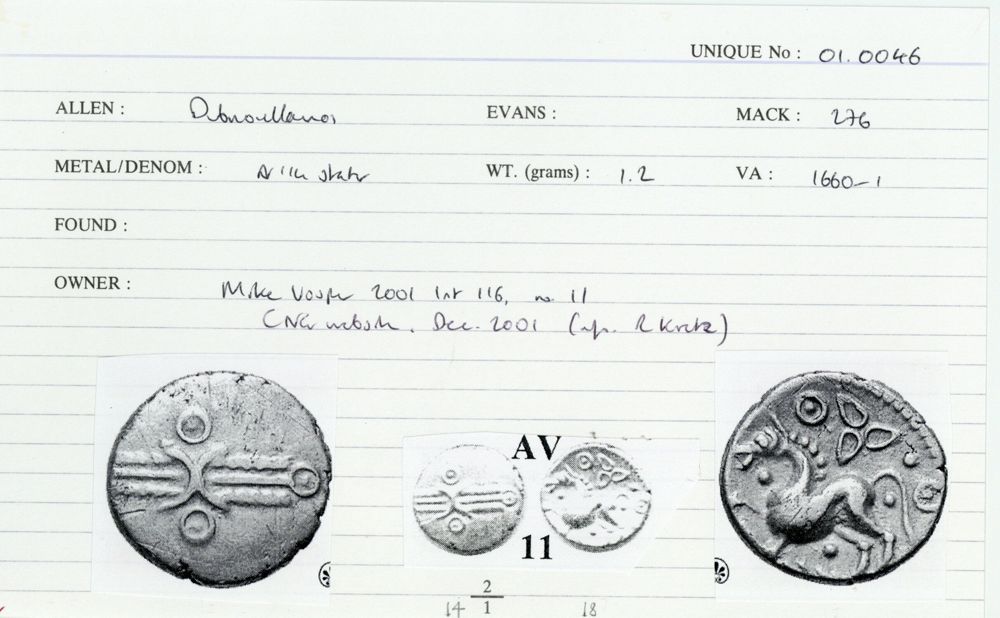 UNIQUE No : 01.0046
ALLEN : Dubnovellaunos EVANS : MACK : 276
METAL/DENOM : stater WT. (grams) : 1.2 VA : 1660-1
FOUND :
OWNER : Mike Vosper 2001 list 116, no. 11
CNG website, Dec. 2001 (
AV
11
2
14 1 18